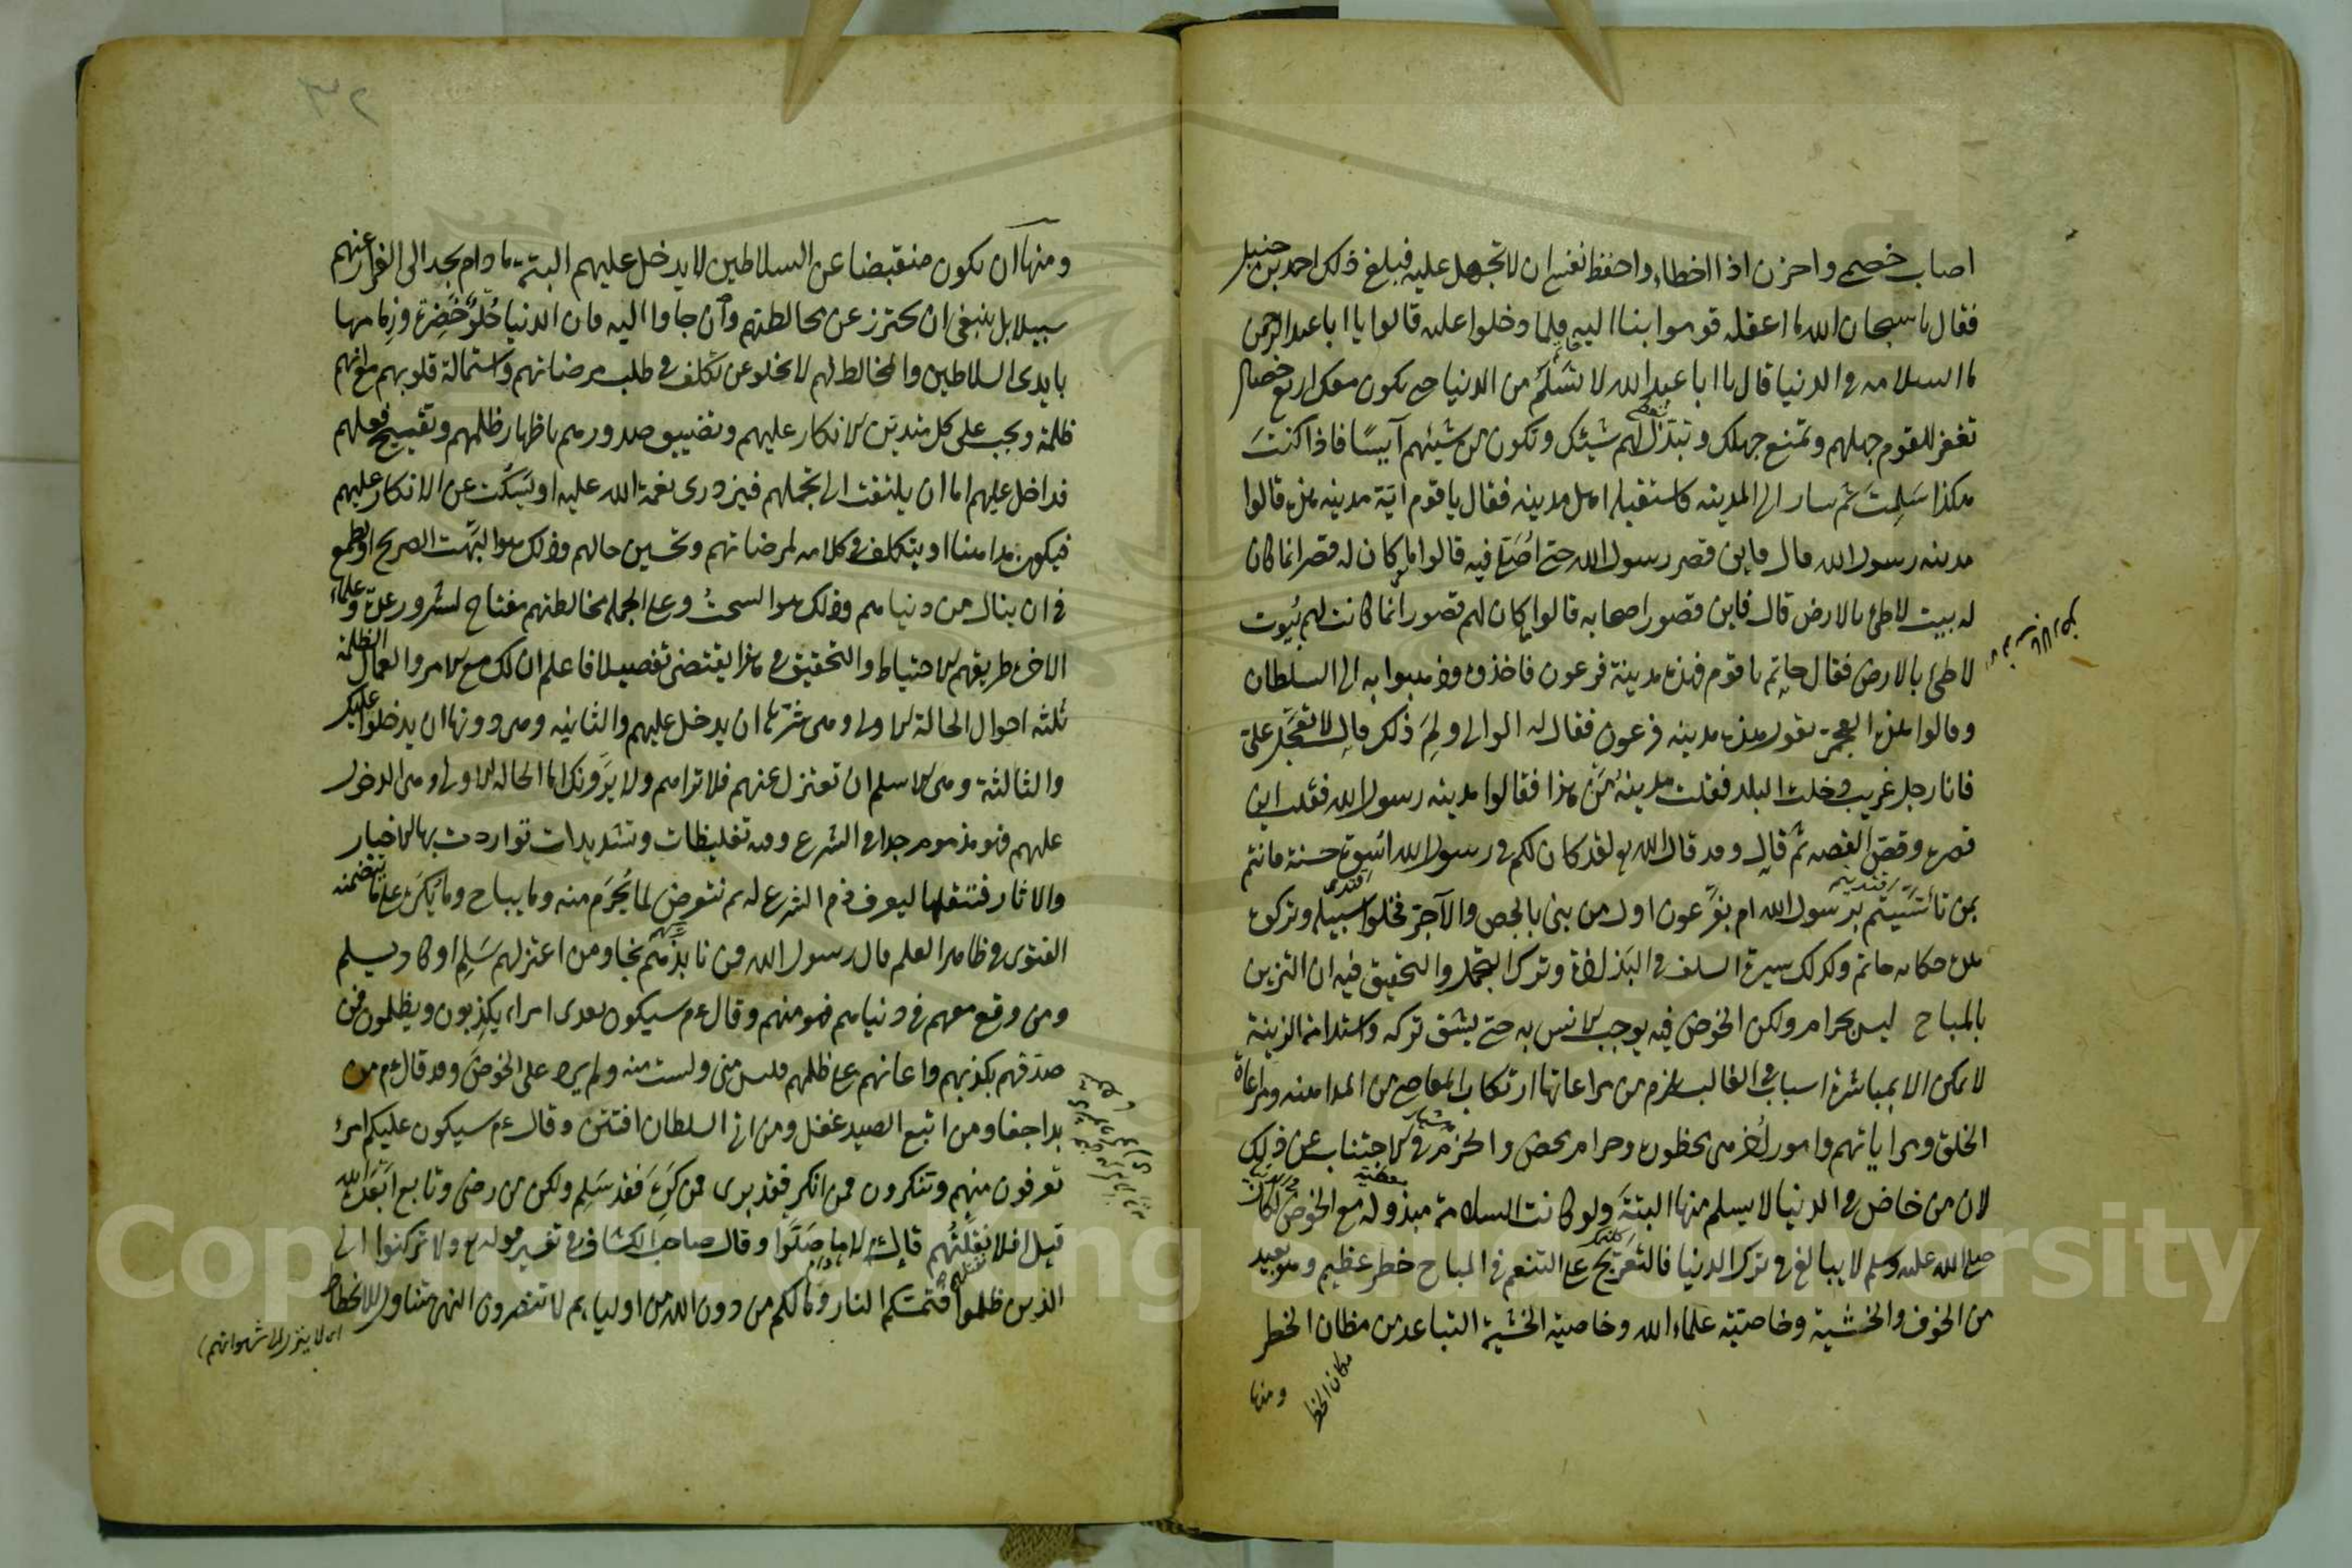 اصاب خصمى واحزن اذا اخطاء واحفظ نفسى ان لا تجهل عليه فبلغ ذلك احمد بن حنبل
فقال يا سبحان الله ما اعقله قوموا بنا اليه فلما دخلوا عليه قالوا يا ابا عبد الرحمن
ما السلامه فى الدنيا قال يا ابا عبد الله لا تسلم من الدنيا حتى يكون معك اربع خصال
تغفر للقوم جهلهم وتمنع جهلك وتبذل لهم شيئك وتكون من شيئهم آيسًا فاذا كنت
هكذا سَلِمتَ ثم سار الى المدينه فاستقبله اهل مدينه فقال يا قوم ايّة مدينه هذه قالوا
مدينه رسول الله قال فاين قصر رسول الله حتى اصلى فيه قالوا ما كان له قصر انما كان
له بيت لاطئ بالارض قال فاين قصور اصحابه قالوا ما كان لهم قصور انما كانت لهم بُيوت
لاطئ بالارض فقال حاتم يا قوم فهذه مدينة فرعون فاخذوه وذهبوا به الى السلطان
وقالوا هذا العجمى يقول هذه مدينه فرعون فقال له الوالى ولِمَ ذلك قال لا تعجل علىّ
فانا رجل غريب دخلت البلد فقلت مدينةُ مَن هذا فقالوا مدينه رسول الله فقلت اين
قصره وقصّ القصه ثم قال وقد قال الله تع لقد كان لكم فى رسول الله اسوة حسنة فانتم
بمن تأسّيتم برسول الله ام بفرعون اول من بنى بالجص والآجر فخلوا سبيله وتركوه
هذه حكايه حاتم وكذلك سيرة السلف فى البذاذة وترك التجمل والتحقيق فيه ان التزين
بالمباح ليس بحرام ولكن الخوض فيه يوجب الانس به حتى يشق تركه واستدامة الزينة
لا يمكن الا بمباشرة اسباب فى الغالب يلزم من مراعاتها ارتكاب المعاصى من المداهنه ومراعاة
الخلق ومراياتهم وامور اُخر هى محظورة وحرام محض والحزم فى الاجتناب عن ذلك
لان من خاض فى الدنيا لا يسلم منها البتة ولو كانت السلامة مبذوله مع الخوض لكان
صلى الله عليه وسلم لا يبالغ فى ترك الدنيا فالتعريج على التنعم فى المباح خطر عظيم وهو بعيد
من الخوف والخشية وخاصيّة علماء الله وخاصية الخشية التباعد من مظان الخطر
مكان الخطر
ومنها
ومنها ان يكون منقبضا عن السلاطين لا يدخل عليهم البتة ما دام يجد الى الفرار عنهم
سبيلا بل ينبغى ان يحترز عن مخالطتهم وان جاوا اليه فان الدنيا حُلوة خَضِرة وزمامها
بايدى السلاطين والمخالط لهم لا يخلو عن تكلف فى طلب مرضاتهم واستمالة قلوبهم مع انهم
ظلمة ويجب على كل متدين الانكار عليهم وتضييق صدورهم باظهار ظلمهم وتقبيح فعلهم
فداخل عليهم اما ان يلتفت الى تجملهم فيزدرى نعمة الله عليه او يسكت عن الانكار عليهم
فيكون مداهنا او يتكلف فى كلامه لمرضاتهم وتحسين حالهم وذلك هو البهت الصريح او يطمع
فى ان ينال من دنياهم وذلك هو السحت وعلى الجمله مخالطتهم مفتاح لشرور عدة وعلماء
الآخرة طريقهم الاحتياط والتحقيق فى هذا يقتضى تفصيلا فاعلم ان لك مع الامرا والعمال الظلمة
ثلثه احوال الحالة الاولى وهى شرها ان يدخل عليهم والثانيه وهى دونها ان يدخلوا عليك
والثالثة وهى الاسلم ان تعتزل عنهم فلا تراهم ولا يرونك اما الحاله الاولى وهى الدخول
عليهم فهو مذموم جدا فى الشرع وفيه تغليظات وتشديدات تواردت بها الاخبار
والاثار فننقلها ليعرف ذم الشرع له ثم نتعرض لما يحرم منه وما يباح وما يكره على ما يتضمنه
الفتوى فى ظاهر العلم قال رسول الله فمن نابذهم نجا ومن اعتزلهم سَلِم او كاد يسلم
ومن وقع معهم فى دنياهم فهو منهم وقال عم سيكون بعدى امراء يكذبون ويظلمون فمن
صدقهم بكذبهم واعانهم على ظلمهم فليس منى ولست منه ولم يرد على الحوض وقد قال عم من
بدا جفا ومن اتبع الصيد غفل ومن اتى السلطان افتتن وقال عم سيكون عليكم امراء
تعرفون منهم وتنكرون فمن انكر فقد برى فمن كره فقد سَلِم ولكن من رضى وتابع ابعده الله
قيل افلا نقاتلهم قال عم لا ما صلّوا وقال صاحب الكشاف فى تفسير قوله تع ولا تركنوا الى
الذين ظلموا فتمسكم النار وما لكم من دون الله من اولياء ثم لا تنصرون النهى متناول للانحطاط